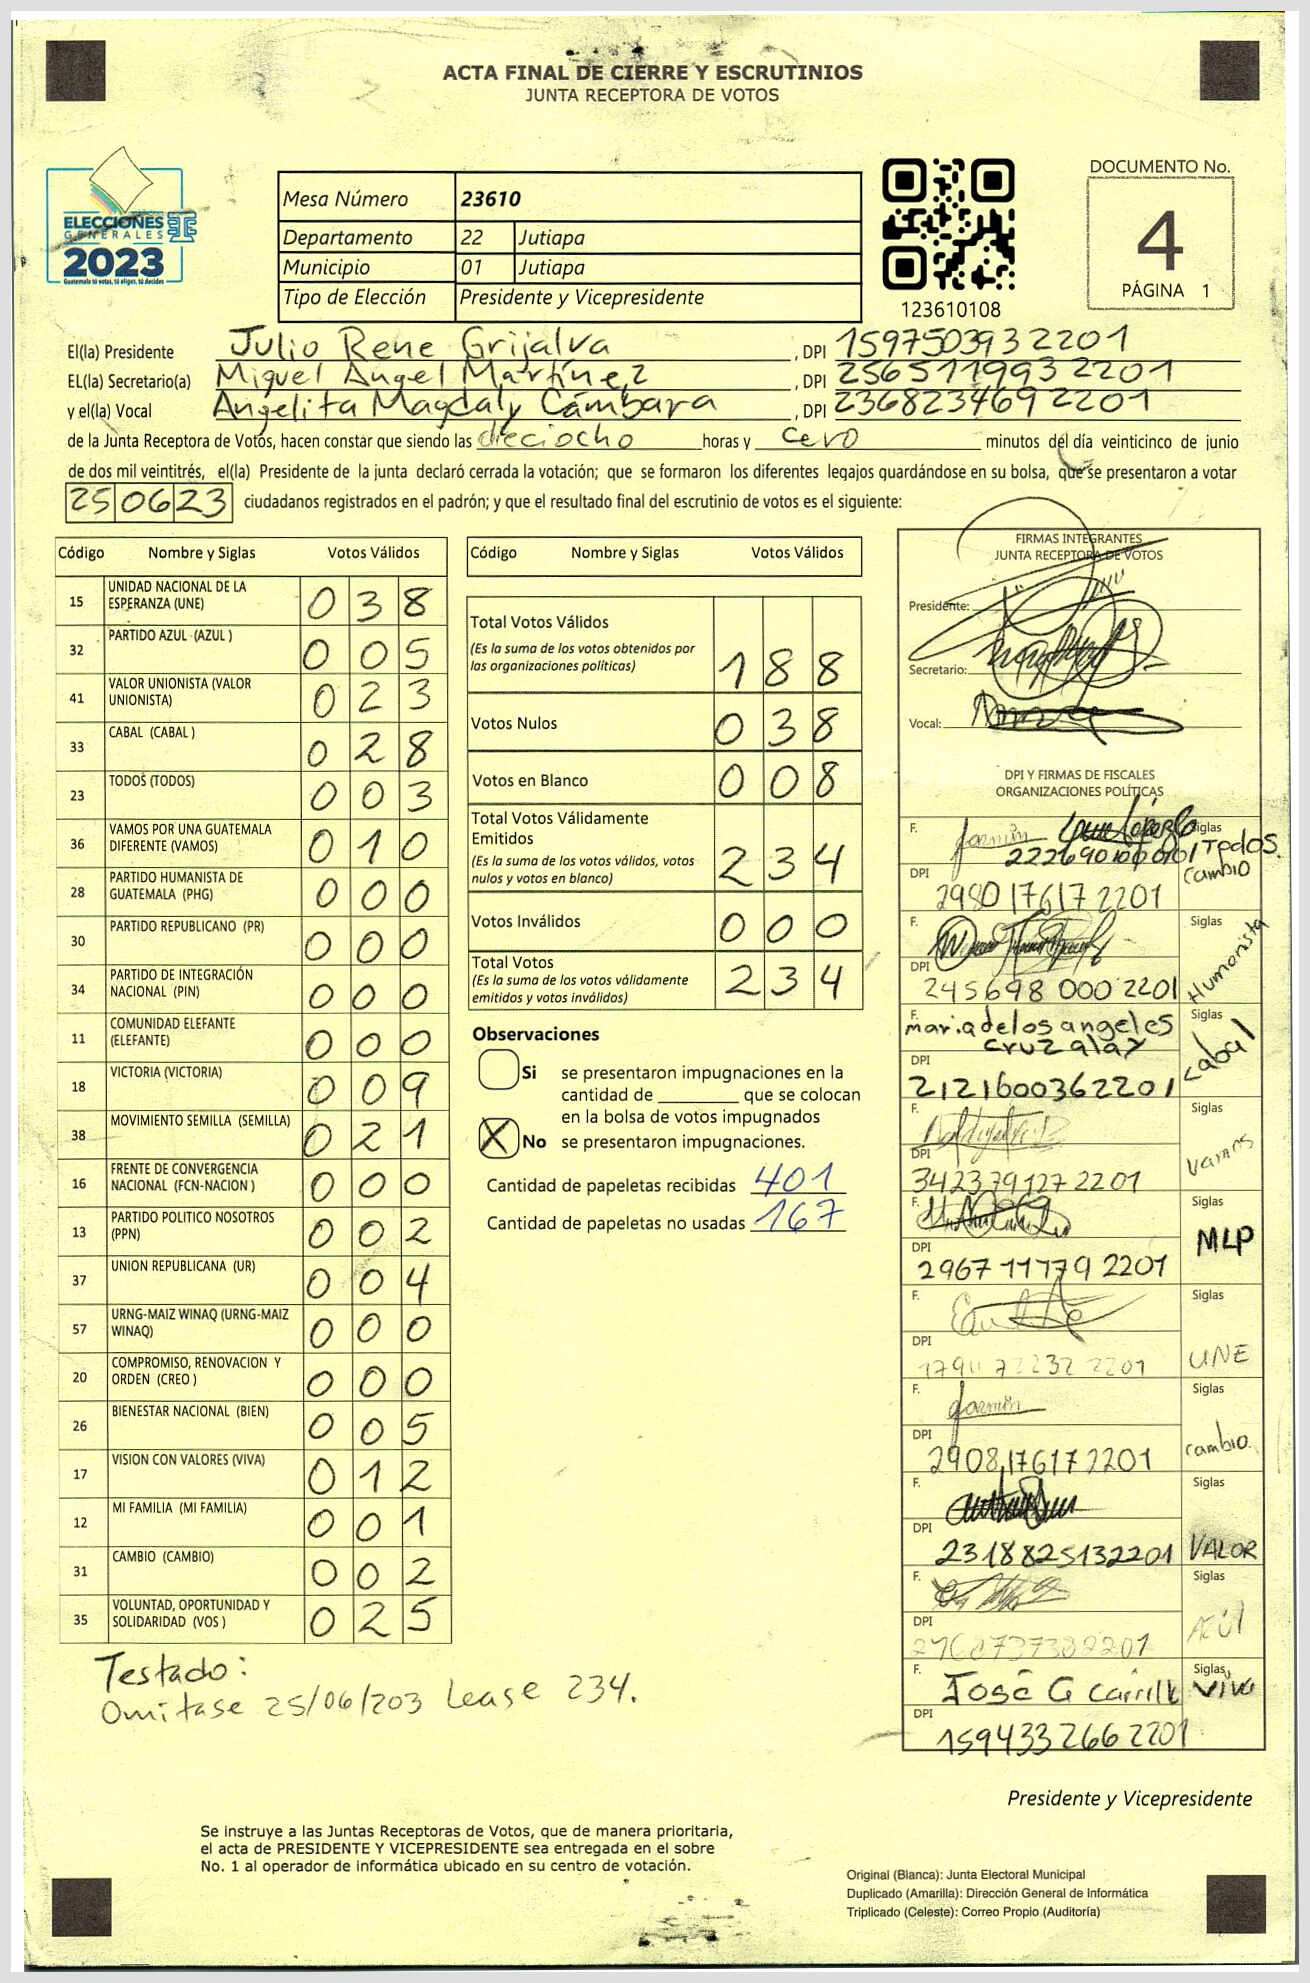 ACTA FINAL DE CIERRE Y ESCRUTINIOS
JUNTA RECEPTORA DE VOTOS
ELECCIONES
GENERALES
2023
Guatemala tú votas, tú eliges, tú decides
Mesa Número 23610
Departamento 22 Jutiapa
Municipio 01 Jutiapa
Tipo de Elección Presidente y Vicepresidente
123610108
DOCUMENTO No.
4
PÁGINA 1
El(la) Presidente Julio Rene Grijalva , DPI 1597503932201
EL(la) Secretario(a) Miguel Angel Martínez , DPI 2565119932201
y el(la) Vocal Angelita Magdaly Cámbara , DPI 2368234692201
de la Junta Receptora de Votos, hacen constar que siendo las dieciocho horas y cero minutos del día veinticinco de junio
de dos mil veintitrés, el(la) Presidente de la junta declaró cerrada la votación; que se formaron los diferentes legajos quardándose en su bolsa, que se presentaron a votar
250623 ciudadanos registrados en el padrón; y que el resultado final del escrutinio de votos es el siguiente:
Código Nombre y Siglas Votos Válidos
15 UNIDAD NACIONAL DE LA ESPERANZA (UNE) 038
32 PARTIDO AZUL (AZUL ) 005
41 VALOR UNIONISTA (VALOR UNIONISTA) 023
33 CABAL (CABAL ) 028
23 TODOS (TODOS) 003
36 VAMOS POR UNA GUATEMALA DIFERENTE (VAMOS) 010
28 PARTIDO HUMANISTA DE GUATEMALA (PHG) 000
30 PARTIDO REPUBLICANO (PR) 000
34 PARTIDO DE INTEGRACIÓN NACIONAL (PIN) 000
11 COMUNIDAD ELEFANTE (ELEFANTE) 000
18 VICTORIA (VICTORIA) 009
38 MOVIMIENTO SEMILLA (SEMILLA) 021
16 FRENTE DE CONVERGENCIA NACIONAL (FCN-NACION ) 000
13 PARTIDO POLITICO NOSOTROS (PPN) 002
37 UNION REPUBLICANA (UR) 004
57 URNG-MAIZ WINAQ (URNG-MAIZ WINAQ) 000
20 COMPROMISO, RENOVACION Y ORDEN (CREO ) 000
26 BIENESTAR NACIONAL (BIEN) 005
17 VISION CON VALORES (VIVA) 012
12 MI FAMILIA (MI FAMILIA) 001
31 CAMBIO (CAMBIO) 002
35 VOLUNTAD, OPORTUNIDAD Y SOLIDARIDAD (VOS ) 025
Testado:
Omitase 25/06/203 Lease 234.
Código Nombre y Siglas Votos Válidos
Total Votos Válidos
(Es la suma de los votos obtenidos por
las organizaciones políticas) 188
Votos Nulos 038
Votos en Blanco 008
Total Votos Válidamente
Emitidos
(Es la suma de los votos válidos, votos
nulos y votos en blanco) 234
Votos Inválidos 000
Total Votos
(Es la suma de los votos válidamente
emitidos y votos inválidos) 234
Observaciones
Si se presentaron impugnaciones en la
cantidad de ________ que se colocan
en la bolsa de votos impugnados
X No se presentaron impugnaciones.
Cantidad de papeletas recibidas 401
Cantidad de papeletas no usadas 167
FIRMAS INTEGRANTES
JUNTA RECEPTORA DE VOTOS
Presidente:
Secretario:
Vocal:
DPI Y FIRMAS DE FISCALES
ORGANIZACIONES POLÍTICAS
F. Siglas Todos.
DPI 2980176172201 Cambio
F. Siglas Humanista
DPI 2456980002201
F. maria de los angeles Siglas Cabal
cruz alay
DPI 2121600362201
F. Siglas Vamos
DPI 3423791272201
F. Siglas MLP
DPI 2967111792201
F. Siglas UNE
DPI
F. Siglas Cambio
DPI 2908176172201
F. Siglas VALOR
DPI 2318825132201
F. Siglas AZUl
DPI
F. José G Carrillo Siglas Viva
DPI 1594332662201
Presidente y Vicepresidente
Se instruye a las Juntas Receptoras de Votos, que de manera prioritaria,
el acta de PRESIDENTE Y VICEPRESIDENTE sea entregada en el sobre
No. 1 al operador de informática ubicado en su centro de votación.
Original (Blanca): Junta Electoral Municipal
Duplicado (Amarilla): Dirección General de Informática
Triplicado (Celeste): Correo Propio (Auditoría)